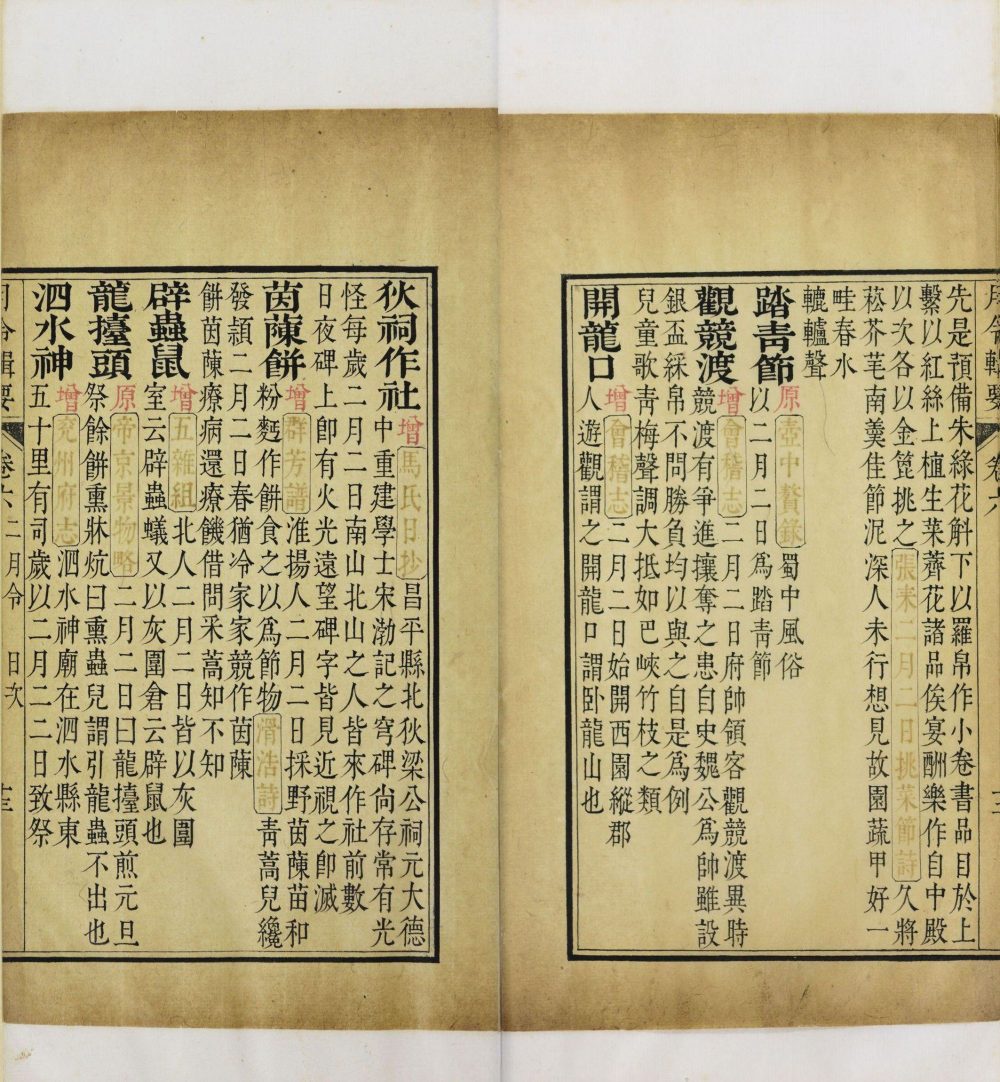 月令輯要 卷六
先是預備朱綠花斛下以羅帛作小卷書品目於上
繫以紅絲上植生菜薺花諸品俟宴酬樂作自中殿
以次各以金篦挑之張耒二月二日挑菜節詩久將
菘芥芼南羹佳節泥深人未行想見故園蔬甲好一
畦春水
轆轤聲
踏靑節
原壺中贅錄蜀中風俗
以二月二日爲踏靑節
觀競渡
增會稽志二月二日府帥領客觀競渡異時
競渡有爭進攘奪之患自史魏公爲帥雖設
銀盃綵帛不問勝負均以與之自是爲例
兒童歌靑梅聲調大抵如巴峽竹枝之類
開龍口
增會稽志二月二日始開西園縱郡
人遊觀謂之開龍口謂卧龍山也
狄祠作社
增馬氏日抄昌平縣北狄梁公祠元大德
中重建學士宋渤記之穹碑尚存常有光
怪每歲二月二日南山北山之人皆來作社前數
日夜碑上卽有火光遠望碑字皆見近視之卽滅
茵蔯餅
增群芳譜淮揚人二月二日採野茵蔯苗和
粉麪作餅食之以爲節物滑浩詩靑蒿兒纔
發頴二月二日春猶冷家家競作茵蔯
餅茵蔯療病還療饑借問采蒿知不知
辟蟲鼠
增五雜組北人二月二日皆以灰圍
室云辟蟲蟻又以灰圍倉云辟鼠也
龍擡頭
原帝京景物略二月二日曰龍擡頭煎元旦
祭餘餅熏牀炕曰熏蟲兒謂引龍蟲不出也
泗水神
增兖州府志泗水神廟在泗水縣東
五十里有司歲以二月二二日致祭
月令輯要 卷六 二月令 日次 十三